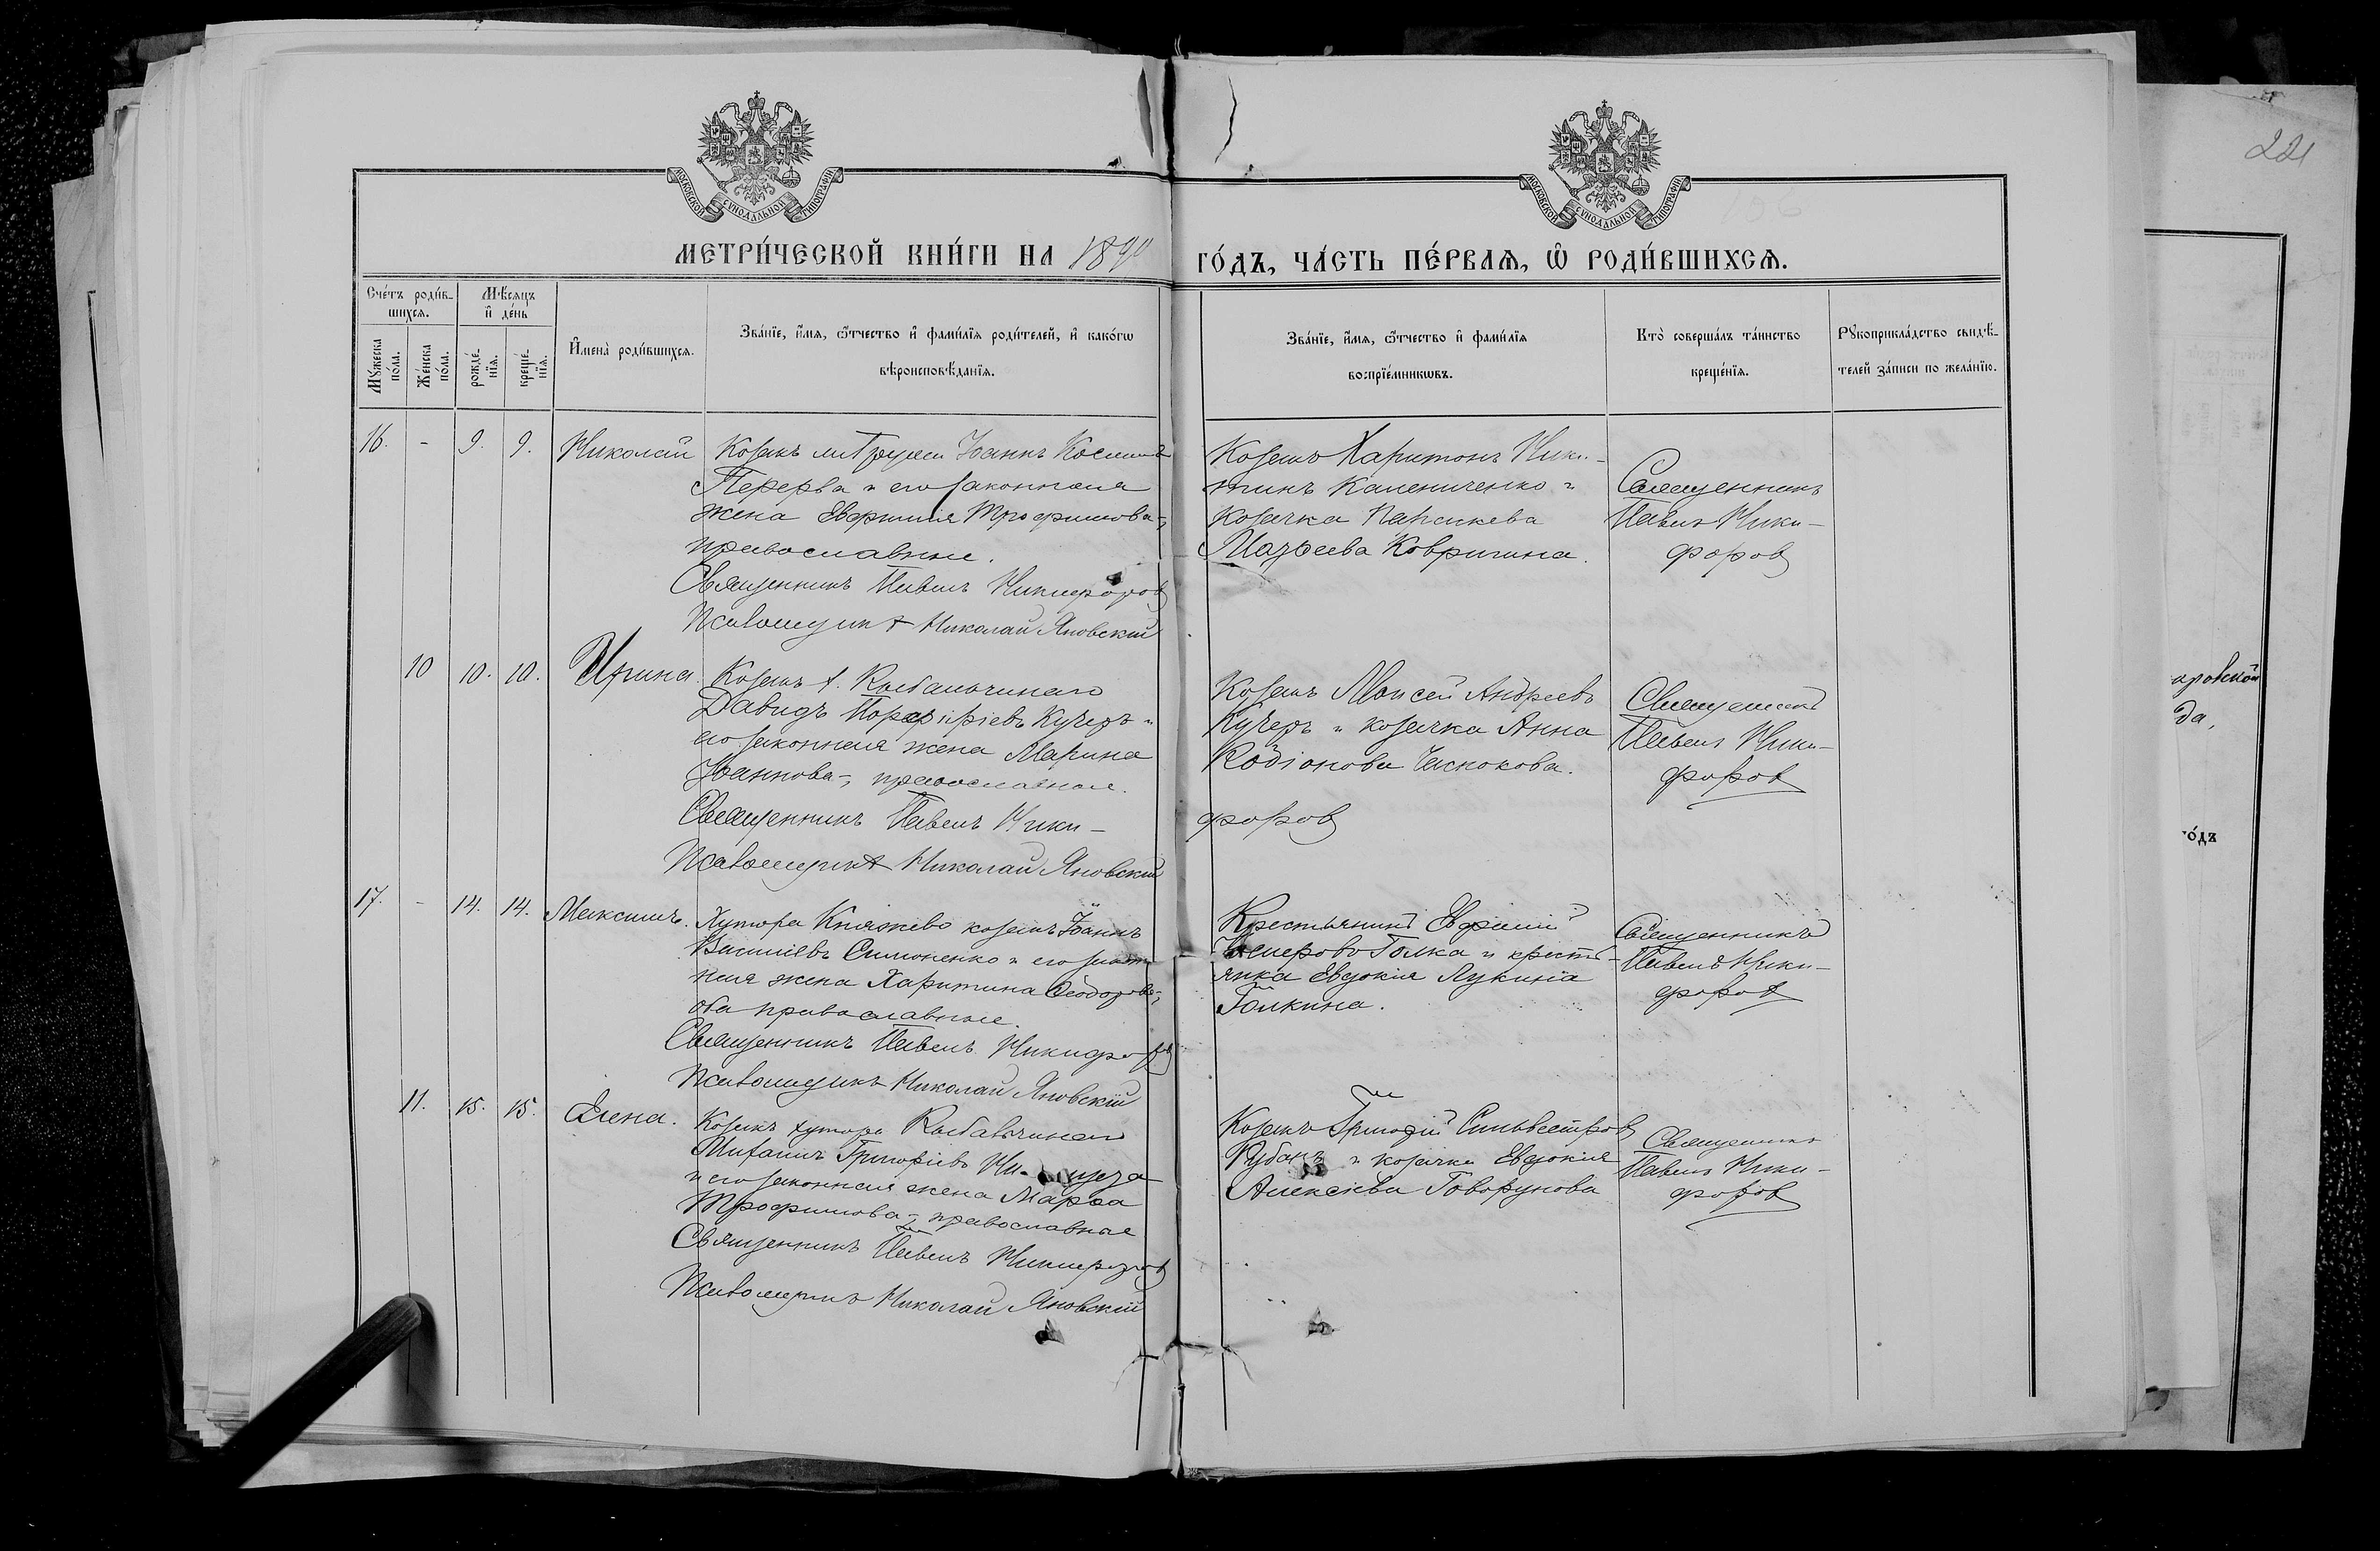 МОСКОВСКОЙ СѴНОДАЛЬНОЙ ТИПОГРАФІИ
МОСКОВСКОЙ СѴНОДАЛЬНОЙ ТИПОГРАФІИ
221
МЕТРИ́ЧЕСКОЙ КНИ́ГИ НА 1890 ГО́ДЪ, ЧА́СТЬ ПЕ́РВАѦ, Ѡ҆ РОДИ́ВШИХСѦ.
Сче́тъ роди́в-
шихсѧ.
Мꙋ́жеска по́ла.
Же́нска по́ла.
Мѣ́сѧцъ
и҆ де́нь
рожде́-нїѧ.
креще́-нїѧ.
И҆мена̀ роди́вшихсѧ.
Зва́нїе, и҆́мѧ, ѻ҆́тчество и҆ фами́лїѧ роди́телей, и҆ како́гѡ
вѣроисповѣ́данїѧ.
Зва́нїе, и҆́мѧ, ѻ҆́тчество и҆ фами́лїѧ
воспрїе́мникѡвъ.
Кто̀ соверша́лъ та́инство
креще́нїѧ.
Рꙋкоприкла́дство свидѣ́-
телей за́писи по жела́нїю.
16. - 9. 9. Николай
Козакъ Іоаннъ Косминъ
Перерва и его законная
жена Евфимія Трофимова,
православные.
Священникъ Павелъ Никифоров
Псаломщикъ Николай Яновскій
Козакъ Харитонъ Ники-
тинъ Калениченко и
козачка Параскева
Матфеева Ковригина.
Священникъ
Павелъ Ники-
форов
10 10. 10. Ирина
Козакъ х.
Давидъ Порфиріевъ Кучеръ и
его законная жена Марина
Іоаннова, православные.
Священникъ Павелъ Ники-
форов
Псаломщикъ Николай Яновскій
Козакъ Моисей Андреевъ
Кучеръ и козачка Анна
Родіонова
Священникъ
Павелъ Ники-
форов
17. - 14. 14. Максимъ.
Хутора Княжево козакъ Іоаннъ
Василіевъ Симоненко и его закон
ная жена Харитина Ѳеодорова,
оба православные.
Священникъ Павелъ Никифоров
Псаломщикъ Николай Яновскій
Крестьянинъ Евфимій
Голка и кресть-
янка Евдокія Лукина
Голкина.
Священникъ
Павелъ Ники-
форов
11. 15. 15. Елена.
Козакъ хутора
Михаилъ Григоріевъ
и его законная жена Марѳа
Трофимова, православные
Священникъ Павелъ Никифоров
Псаломщикъ Николай Яновскій
Козакъ Григорій Сильвестров
Рубанъ и козачка Евдокія
Алексіева Говорунова
Священникъ
Павелъ Ники-
форов
да,
го́дъ